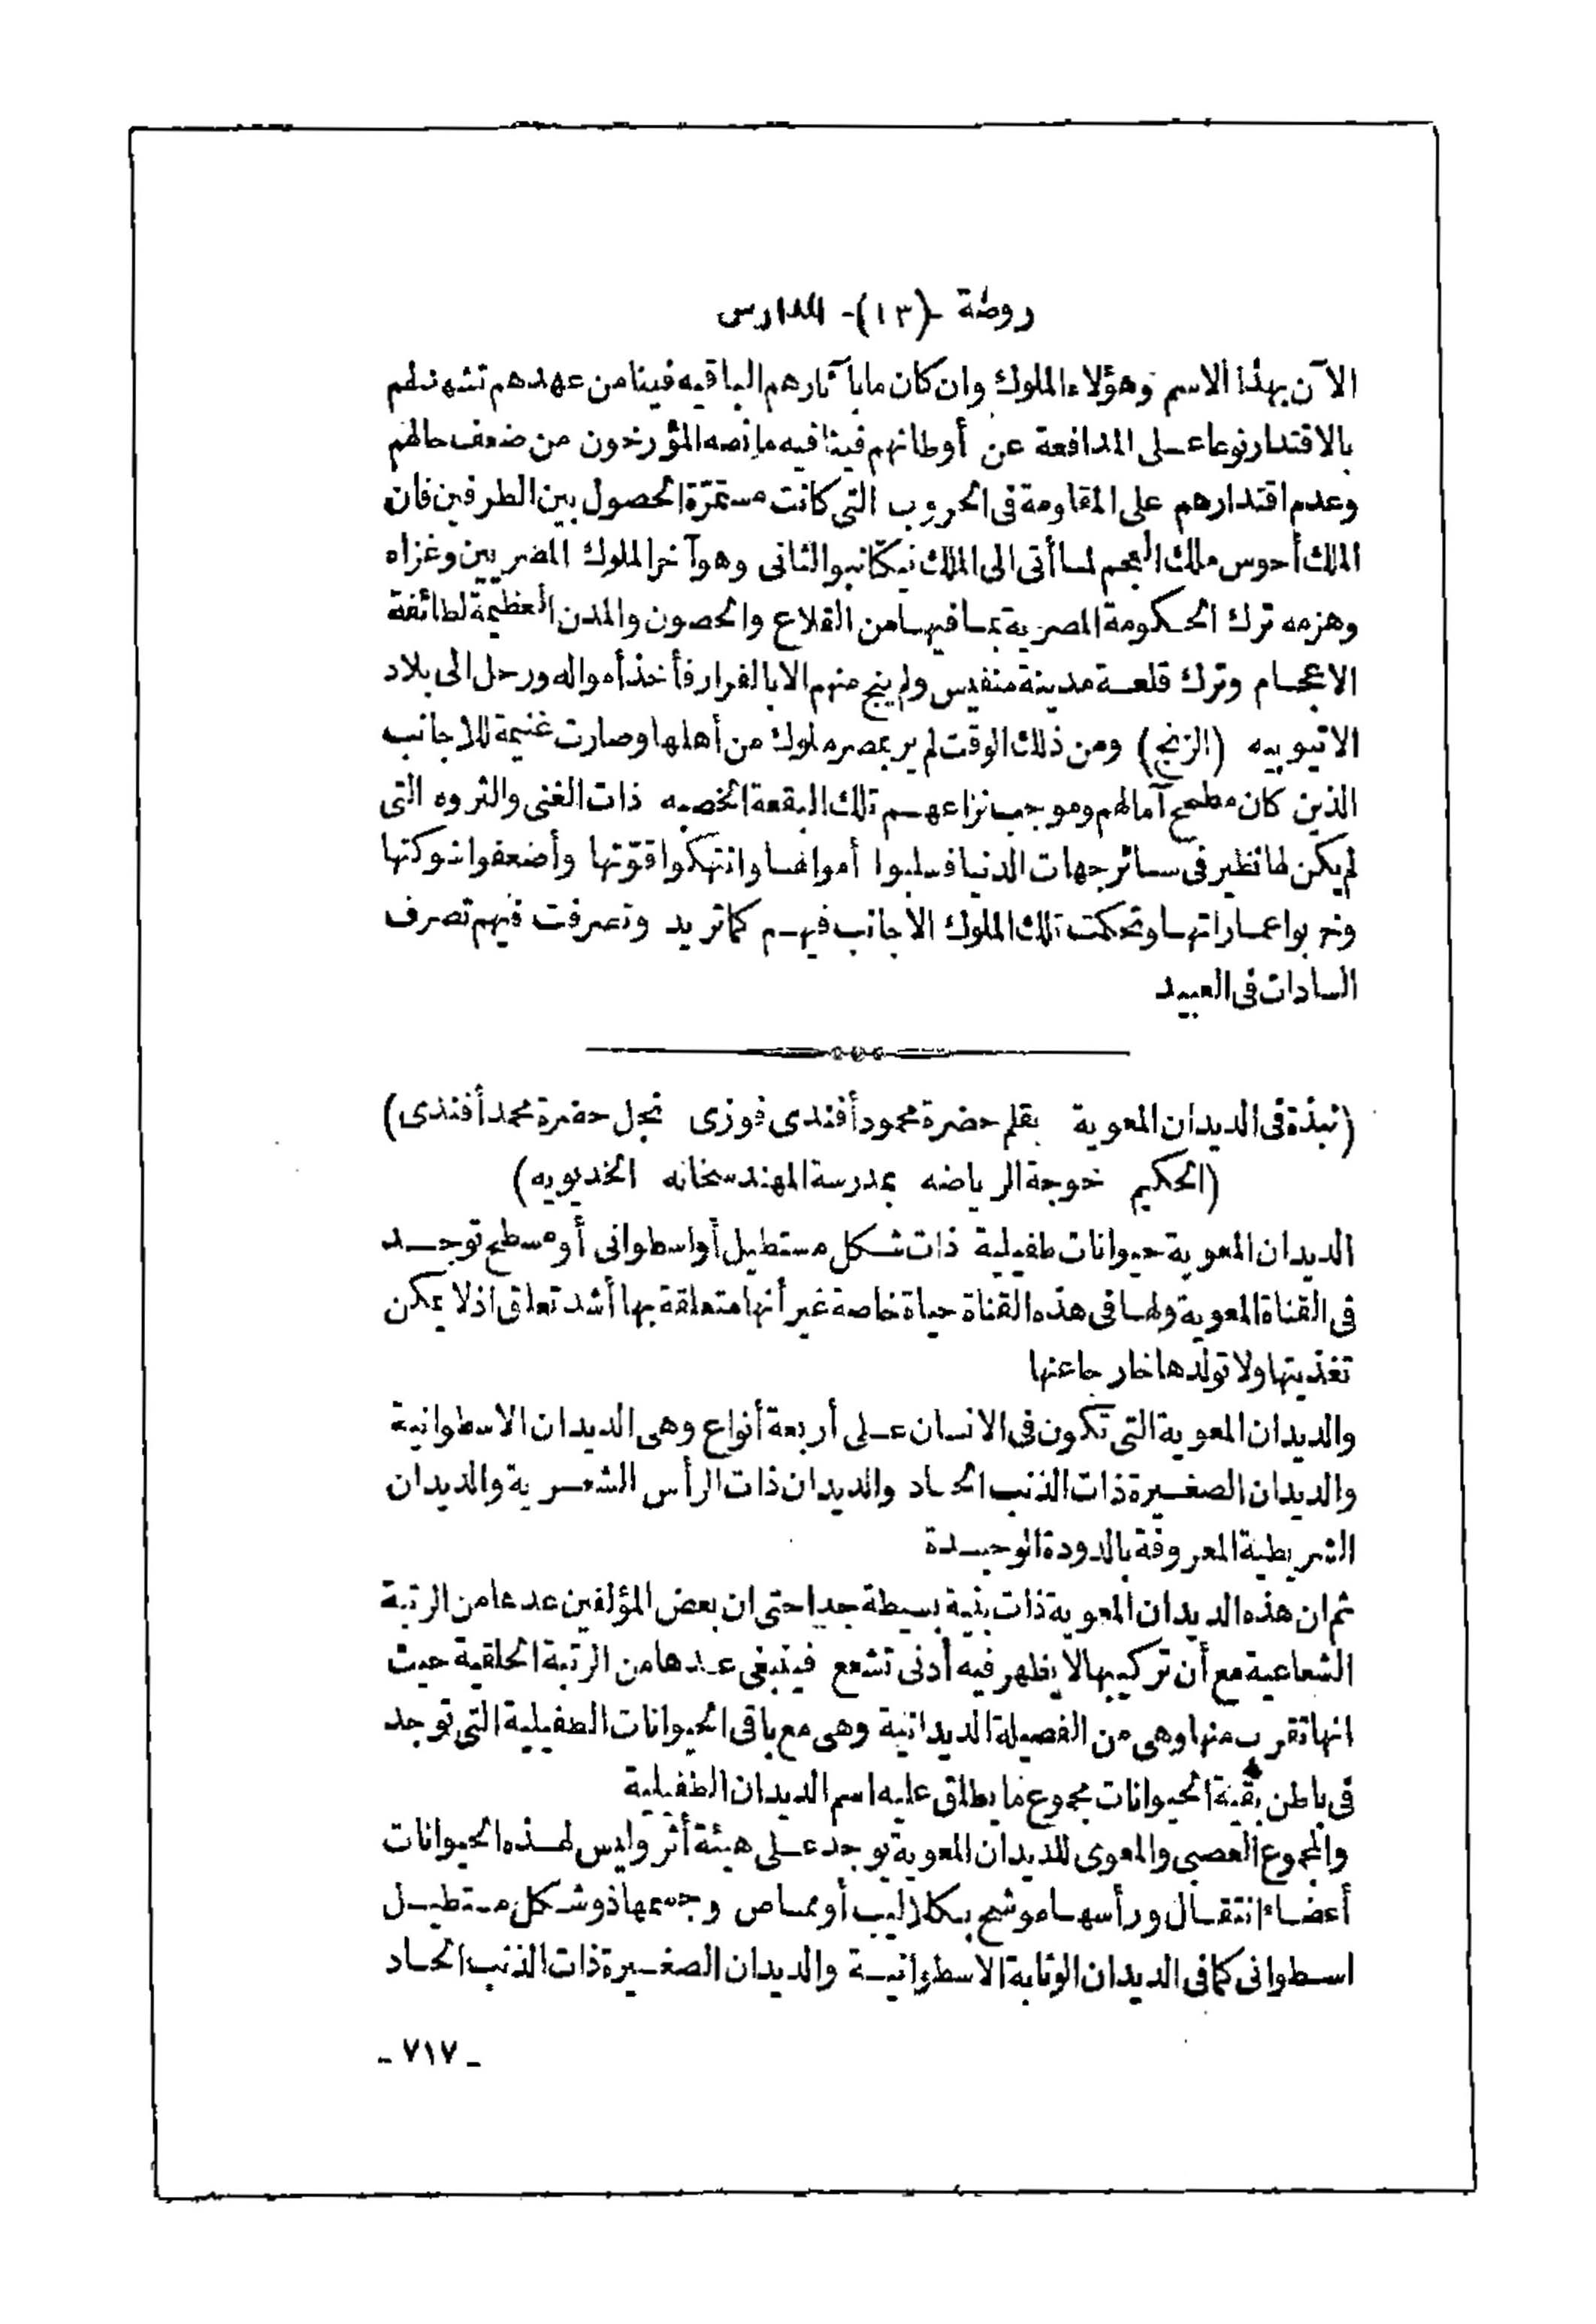 روضة -(١٣)- المدارس
الآن بهذا الاسم وهؤلاء الملوك وان كان ما بآثارهم الباقيه فينا من عهدهم تشهد لهم
بالاقتدار نوعا على المدافعة عن أوطانهم فينافيه ما نصه المؤرخون من ضعف حالهم
وعدم اقتدارهم على المقاومة فى الحروب التى كانت مستمرّة الحصول بين الطرفين فان
الملك أحوس ملك العجم لما أتى الى الملك نيكتانبو الثانى وهو آخر الملوك المصريين وغزاه
وهزمه ترك الحكومة المصرية بما فيها من القلاع والحصون والمدن العظيمة لطائفة
الاعجام وترك قلعة مدينة منفيس ولم ينج منهم الا بالفرار فأخذ أمواله ورحل الى بلاد
الاتيوبيه (الزنج) ومن ذلك الوقت لم ير بمصر ملوك من أهلها وصارت غنيمة للاجانب
الذين كان مطمح آمالهم وموجب نزاعهم تلك البقعة الخصبه ذات الغنى والثروه التى
لم يكن لها نظير فى سائر جهات الدنيا فسلبوا أموالها وانتهكوا قوّتها وأضعفوا شوكتها
وخربوا عماراتها وتحكمت تلك الملوك الاجانب فيهم كما تريد وتصرفت فيهم تصرف
السادات فى العبيد
(نبذة فى الديدان المعوية بقلم حضرة محمود أفندى فوزى نجل حضرة محمد أفندى)
(الحكيم خوجة الرياضه بمدرسة المهندسخانه الخديويه)
الديدان المعوية حيوانات طفيلية ذات شكل مستطيل أو اسطوانى أو مسطح توجد
فى القناة المعوية ولها فى هذه القناة حياة خاصة غير أنها متعلقة بها أشد تعلق اذ لا يمكن
تغذيتها ولا تولدها خارجا عنها
والديدان المعوية التى تكون فى الانسان على أربعة أنواع وهى الديدان الاسطوانية
والديدان الصغيرة ذات الذنب الحاد والديدان ذات الرأس الشعرية والديدان
الشريطية المعروفة بالدودة الوحيدة
ثم ان هذه الديدان المعوية ذات بنية بسيطة جدا حتى ان بعض المؤلفين عدها من الرتبة
الشعاعية مع أن تركيبها لا يظهر فيه أدنى تشعع فينبغى عدها من الرتبة الحلقية حيث
انها تقرب منها وهى من الفصيلة الديدانية وهى مع باقى الحيوانات الطفيلية التى توجد
فى باطن بقية الحيوانات مجموع ما يطلق عليه اسم الديدان الطفيلية
والمجموع العصبى والمعوى للديدان المعوية يوجد على هيئة أثر وليس لهذه الحيوانات
أعضاء انتقال ورأسها موشح بكلاليب أو ممساص وجسمها ذو شكل مستطيل
اسطوانى كما فى الديدان الوثابة الاسطوانية والديدان الصغيرة ذات الذنب الحاد
- ٧١٧ -